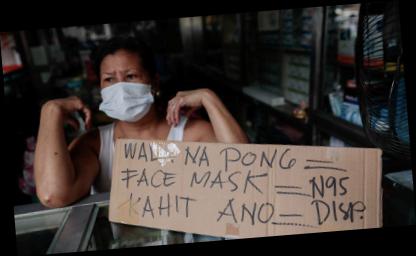 WALA NA PONG
FACE MASK N95
KAHIT ANO DISP.